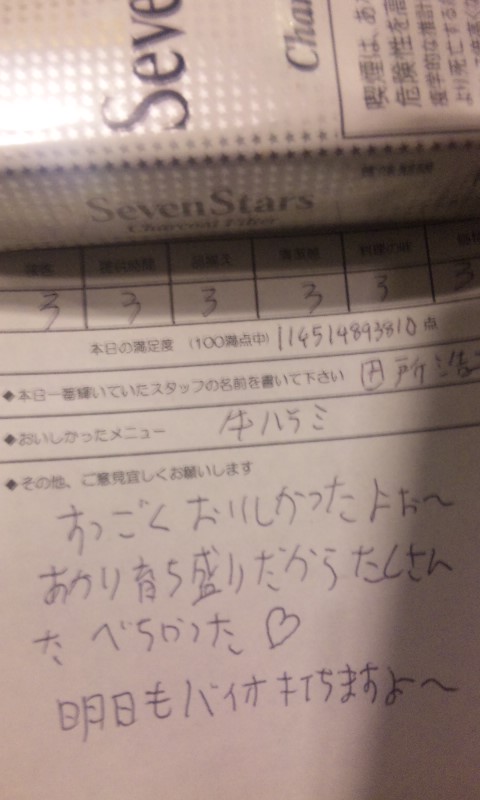 Seve
Char
喫煙は、あ
危険性を高
疫学的な推計
より死亡する
SevenStars
Charcoal Filter
接客 提供時間 品揃え 清潔感 料理の味 価格
3 3 3 3 3 3
本日の満足度 (100満点中) 114514893810 点
◆本日一番輝いていたスタッフの名前を書いて下さい 田所 浩
◆おいしかったメニュー 牛ハラミ
◆その他、ご意見宜しくお願いします
すっごく おいしかったよぉ〜
あかり育ち盛りだからたくさん
たべちゃった♡
明日もバイオ打ちますよ〜